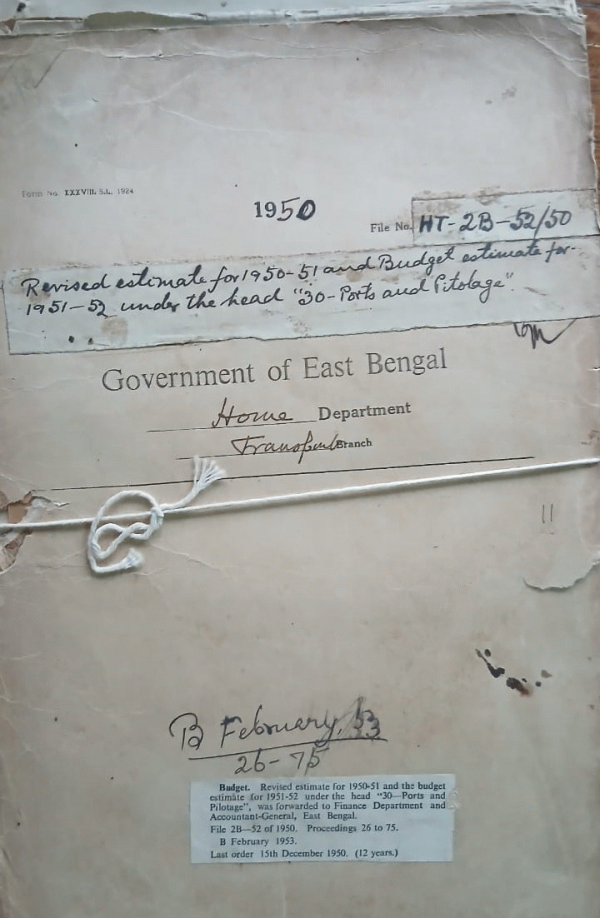 Form No. XXXVIII. S.L. 1924
1950
File No. HT-2B-52/50
Revised estimate for 1950-51 and Budget estimate for
1951-52 under the head "30-Ports and Pitolage".
Government of East Bengal
Home Department
Transport Branch
11
B February, 53
26-75
Budget. Revised estimate for 1950-51 and the budget
estimate for 1951-52 under the head "30—Ports and
Pilotage", was forwarded to Finance Department and
Accountant-General, East Bengal.
File 2B—52 of 1950. Proceedings 26 to 75.
B February 1953.
Last order 15th December 1950. (12 years.)